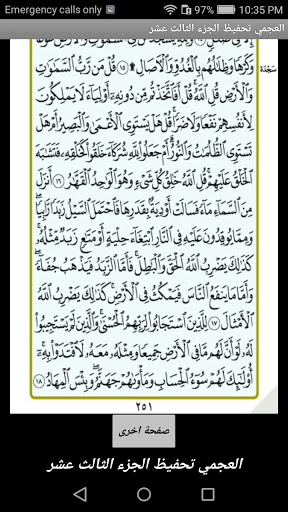 Emergency calls only 10:35 PM
العجمي تحفيظ الجزء الثالث عشر
وَكَرْهًا وَظِلَٰلُهُم بِٱلْغُدُوِّ وَٱلْءَاصَالِ ۩ ١٥ قُلْ مَن رَّبُّ ٱلسَّمَٰوَٰتِ
سَجْدَة
وَٱلْأَرْضِ قُلِ ٱللَّهُ قُلْ أَفَٱتَّخَذْتُم مِّن دُونِهِۦٓ أَوْلِيَآءَ لَا يَمْلِكُونَ
لِأَنفُسِهِمْ نَفْعًا وَلَا ضَرًّا قُلْ هَلْ يَسْتَوِى ٱلْأَعْمَىٰ وَٱلْبَصِيرُ أَمْ هَلْ
تَسْتَوِى ٱلظُّلُمَٰتُ وَٱلنُّورُ أَمْ جَعَلُوا۟ لِلَّهِ شُرَكَآءَ خَلَقُوا۟ كَخَلْقِهِۦ فَتَشَٰبَهَ
ٱلْخَلْقُ عَلَيْهِمْ قُلِ ٱللَّهُ خَٰلِقُ كُلِّ شَىْءٍ وَهُوَ ٱلْوَٰحِدُ ٱلْقَهَّٰرُ ١٦ أَنزَلَ
مِنَ ٱلسَّمَآءِ مَآءً فَسَالَتْ أَوْدِيَةٌۢ بِقَدَرِهَا فَٱحْتَمَلَ ٱلسَّيْلُ زَبَدًا رَّابِيًا
وَمِمَّا يُوقِدُونَ عَلَيْهِ فِى ٱلنَّارِ ٱبْتِغَآءَ حِلْيَةٍ أَوْ مَتَٰعٍ زَبَدٌ مِّثْلُهُۥ
كَذَٰلِكَ يَضْرِبُ ٱللَّهُ ٱلْحَقَّ وَٱلْبَٰطِلَ فَأَمَّا ٱلزَّبَدُ فَيَذْهَبُ جُفَآءً
وَأَمَّا مَا يَنفَعُ ٱلنَّاسَ فَيَمْكُثُ فِى ٱلْأَرْضِ كَذَٰلِكَ يَضْرِبُ ٱللَّهُ
ٱلْأَمْثَالَ ١٧ لِلَّذِينَ ٱسْتَجَابُوا۟ لِرَبِّهِمُ ٱلْحُسْنَىٰ وَٱلَّذِينَ لَمْ يَسْتَجِيبُوا۟
لَهُۥ لَوْ أَنَّ لَهُم مَّا فِى ٱلْأَرْضِ جَمِيعًا وَمِثْلَهُۥ مَعَهُۥ لَٱفْتَدَوْا۟ بِهِۦٓ
أُو۟لَٰٓئِكَ لَهُمْ سُوٓءُ ٱلْحِسَابِ وَمَأْوَىٰهُمْ جَهَنَّمُ وَبِئْسَ ٱلْمِهَادُ ١٨
٢٥١
صفحة اخرى
العجمي تحفيظ الجزء الثالث عشر